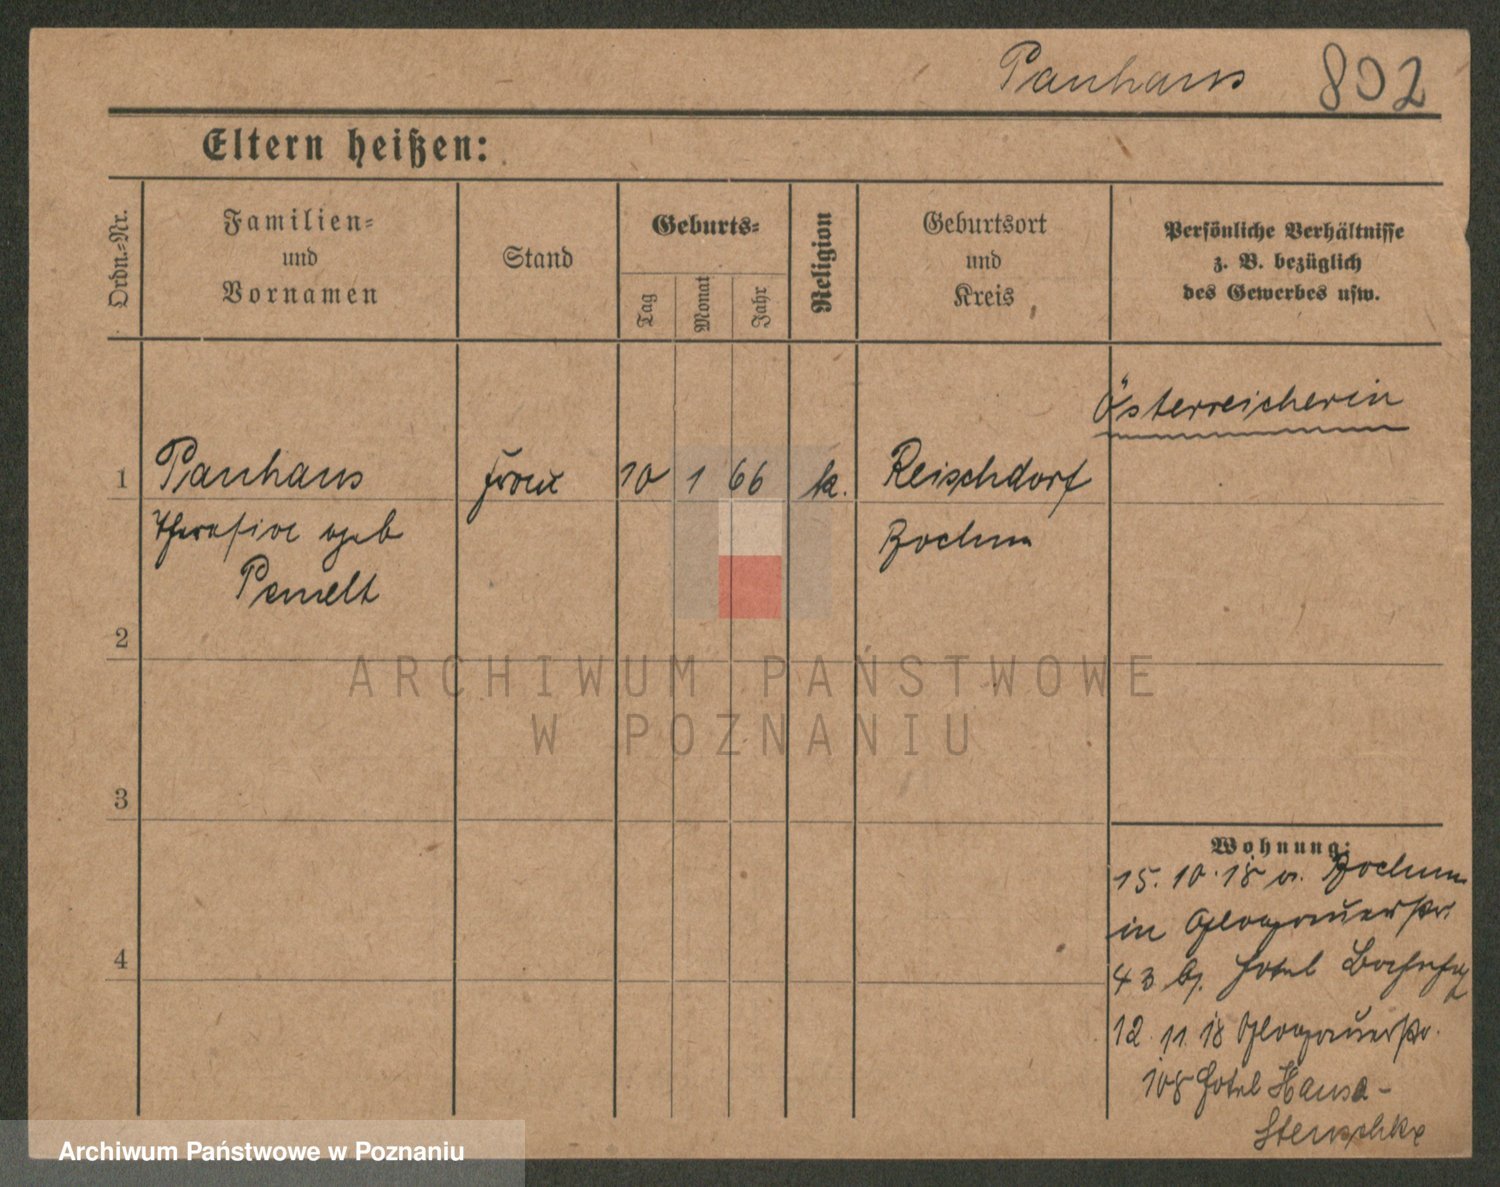 Panhans 802
Eltern heißen:
Ordn.-Nr.
Familien-
und
Vornamen
Stand
Geburts-
Tag
Monat
Jahr
Religion
Geburtsort
und
Kreis
Persönliche Verhältnisse
z. B. bezüglich
des Gewerbes usw.
Österreicherin
1 Panhans Frau 10 1 66 k. Reischdorf
geb Bochum
2
3
4
Wohnung:
15. 10. 18 v. Bochum
in Glogauerstr.
43 b. Hotel
12. 11. 18 Glogauerstr.
108 Hotel Hansa-
ARCHIWUM PAŃSTWOWE
W POZNANIU
Archiwum Państwowe w Poznaniu